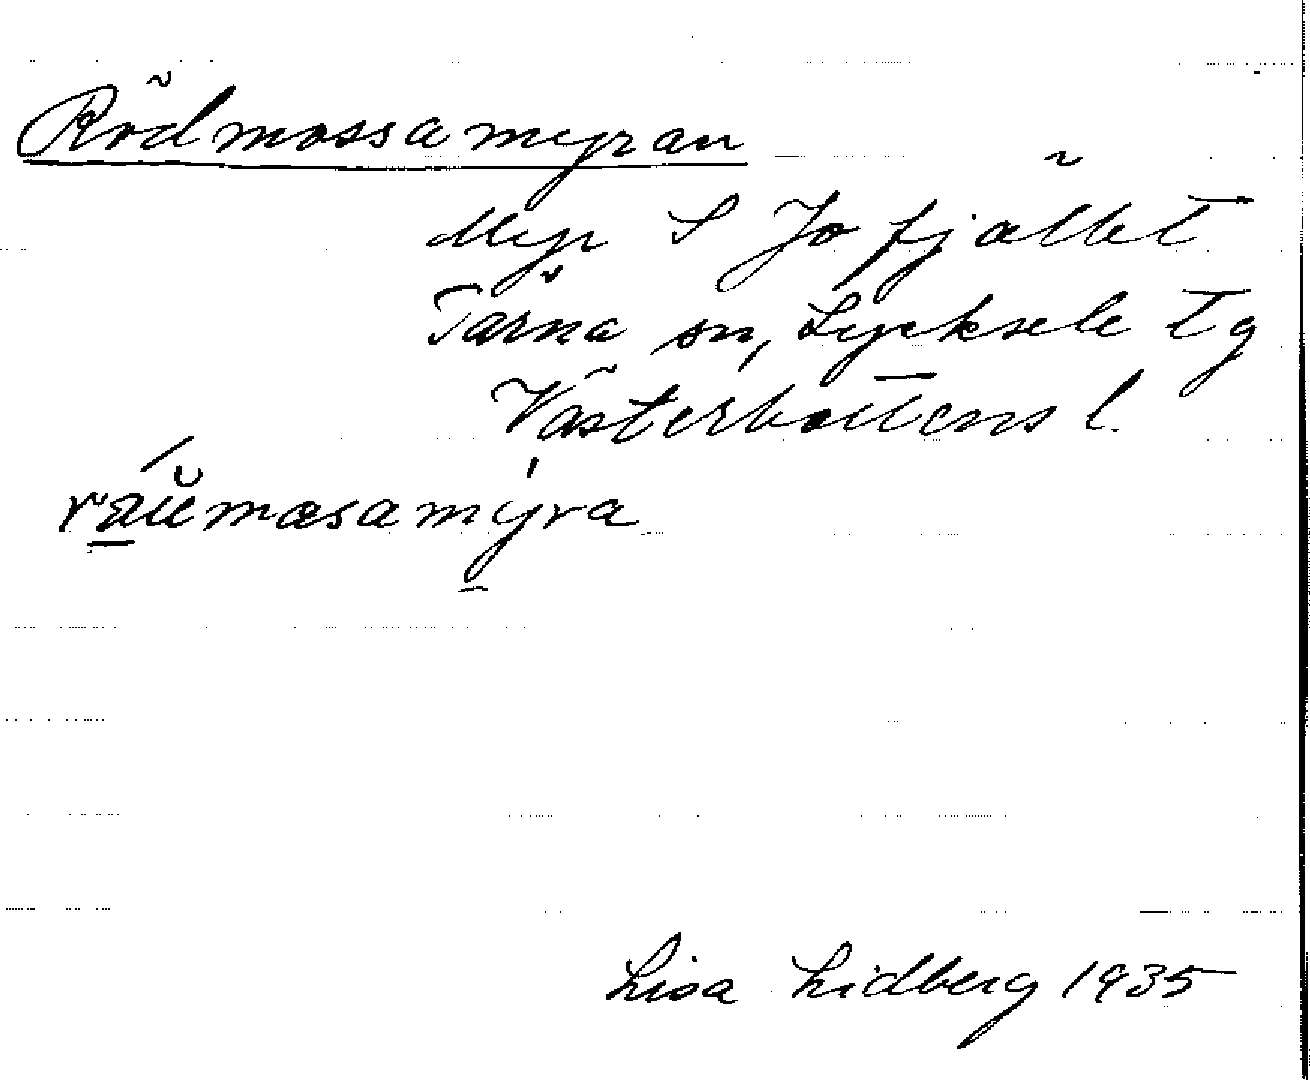 Rödmossamyran
Myr S Jofjället
Tärna sn, Lycksele tg
Västerbottens l.
mæsamýra
Lisa Lidberg 1935